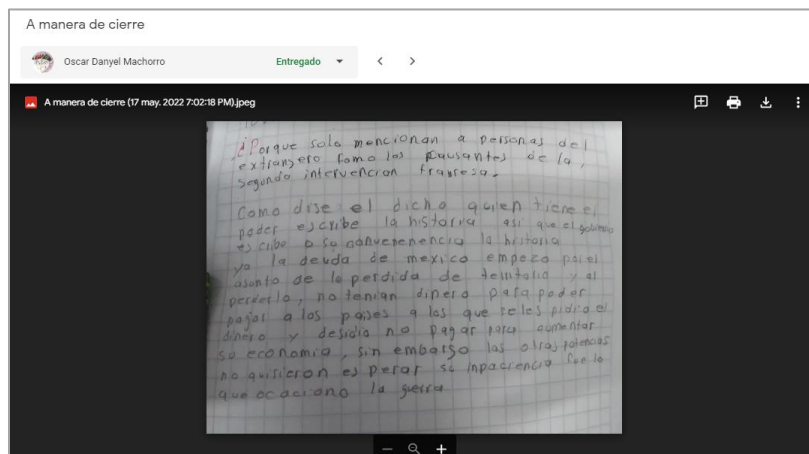 A manera de cierre
Oscar Danyel Machorro
Entregado
A manera de cierre (17 may. 2022 7:02:18 PM).jpeg
¿Porque solo mencionan a personas del
extranjero como los causantes de la,
segunda intervencion francesa.
Como dise el dicho quien tiene el
poder escribe la historia asi que el gobierno
escribe a su convenencia la historia
ya la deuda de mexico empezo por el
asonto de la perdida de territorio y al
perderlo, no tenian dinero para poder
pagar a los paises a los que se les pidio el
dinero y desidio no pagar para aumentar
su economia, sin embargo las otras potencias
no quisieron esperar su inpaciencia fue lo
que ocaciono la guerra